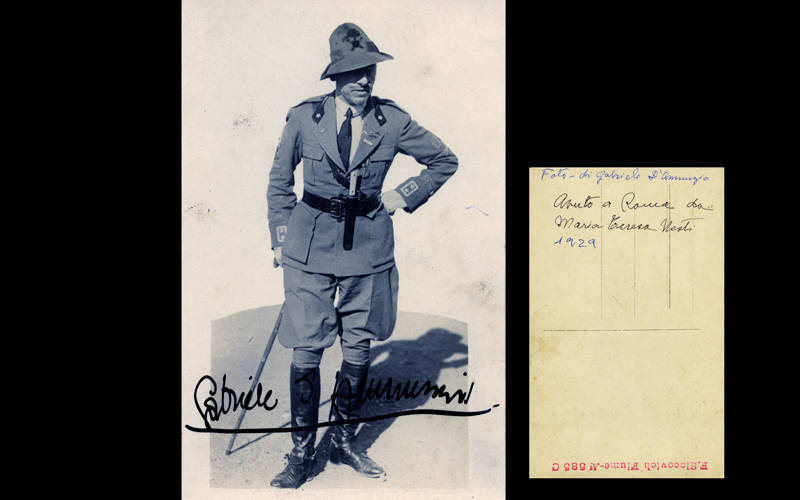 Gabriele D'Annunzio
Foto - di Gabriele D'Annunzio
Avuto a Roma da
Maria Teresa Nesti
1929
F. Slocovich Fiume - N 585 C